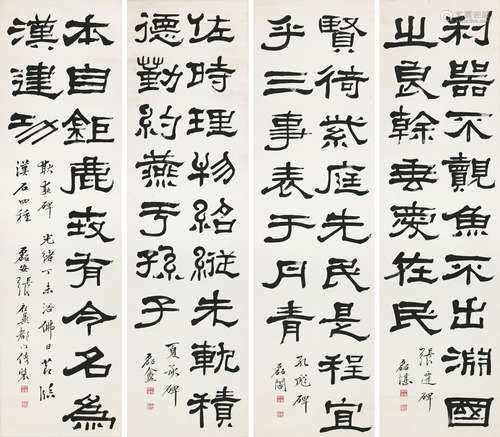 利器不覿魚不出淵國
之良幹垂愛在民
張遷碑
賢倚紫庭先民是程宜
乎三事表于月青
孔彪碑
磊闇
佐時理物紹縱先軌積
德勤約燕于孫子
夏承碑
磊盦
本自鉅鹿世有令名為
漢建功
耿勳碑 光緒丁未浴佛日節臨
漢石四種 磊安張祖翼都門倚裝